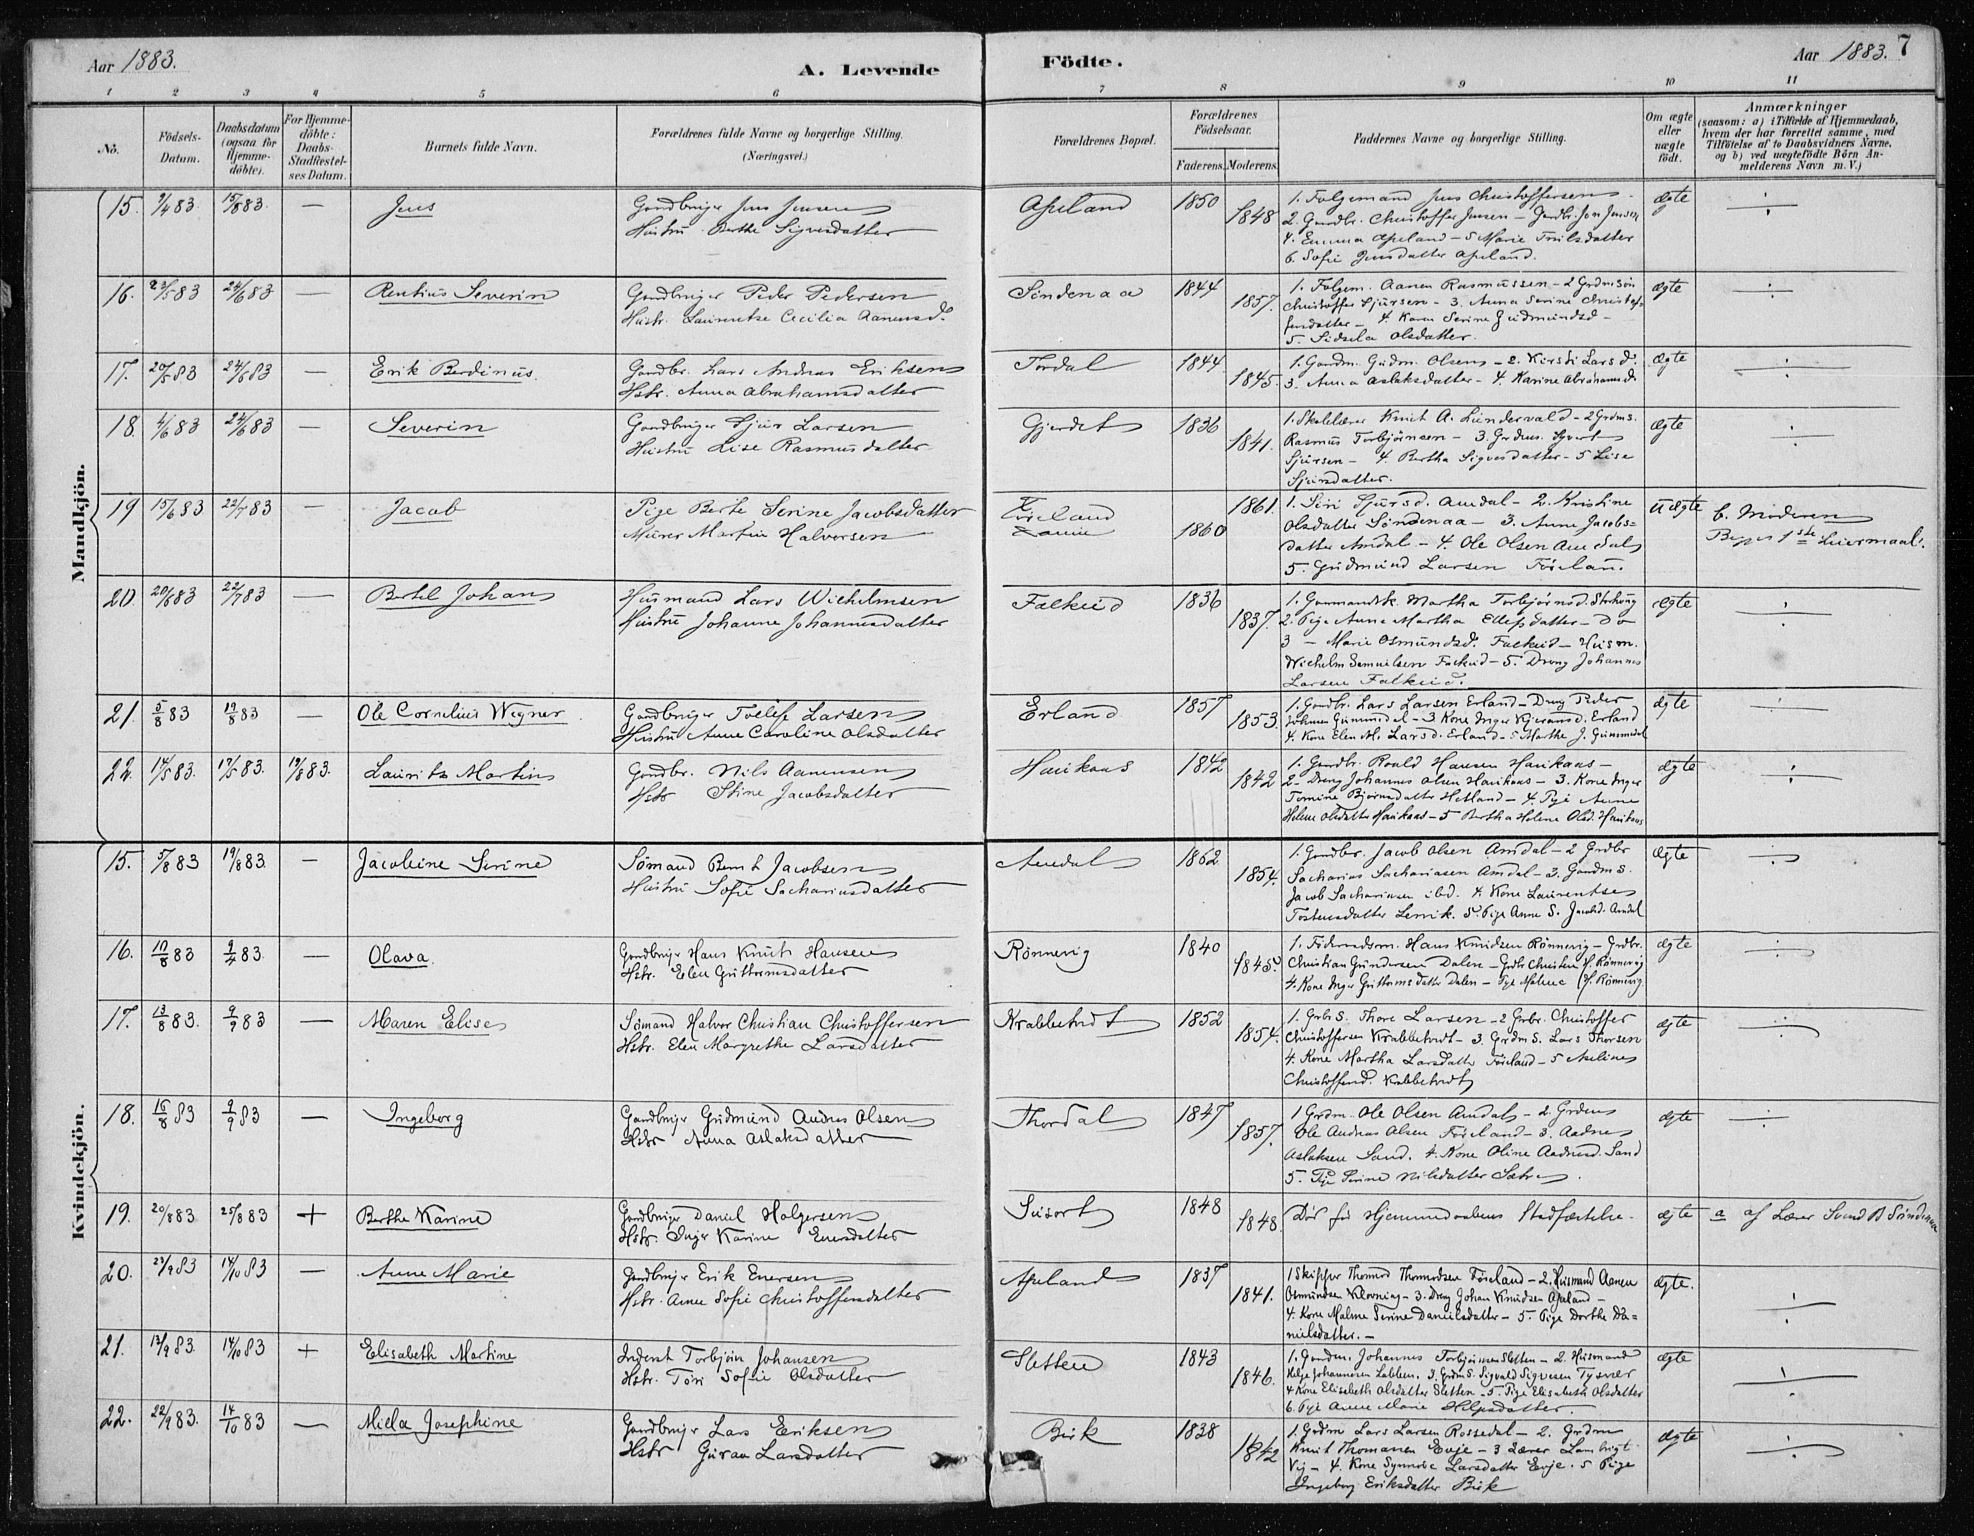 Aar 1883.
A. Levende
Födte.
Aar 1883. 7
1 2 3 4 5 6 7 8 9 10 11
No.
Födsels-Datum.
Daabsdatum (ogsaa for Hjemme-döbte).
For Hjemme-döbte: Daabs-Stadfæstel-ses Datum.
Barnets fulde Navn.
Forældrenes fulde Navne og borgerlige Stilling.
(Næringsvei.)
Forældrenes Bopæl.
Forældrenes Födselsaar.
Faderens. Moderens.
Faddernes Navne og borgerlige Stilling.
Om ægte eller uægte födt.
Anmærkninger
(saasom: a) i Tilfælde af Hjemmedaab,
hvem der har forrettet samme, med
Tilföielse af to Daabsvidners Navne,
og b) ved uægtefödte Börn An-
melderens Navn m. V.)
Mandkjön.
15. 9/4 83 15/8 83 — Jens
Gaardbruger Jens Jensen
Hustru Berthe Sigvesdatter
Apeland 1850 1848
1. Folgemand Jens Christoffersen
2. Gaardbr. Christoffer Jensen — Gaardbr. Jon Jensen
4. Emma Apeland — 5 Marie Truilsdatter
6. Sofie Jensdatter Apeland.
ægte
16. 23/5 83 24/6 83 — Rentius Severin
Gaardbruger Peder Pedersen
Hustr. Laurentse Cecilia Aanensd.
Söndenaa 1844 1857.
1. Folgem. Aanen Rasmussen — 2 Grdmsön
Christoffer Sjursen — 3. Anna Serine Christof-
fersdatter — 4. Karen Serine Gudmundsd —
5. Sidsela Olsdatter.
ægte
17. 20/5 83 24/6 83 — Erik Berdinus.
Gaardbr. Lars Andreas Eriksen
Hstr. Anna Abrahamsdatter
Tordal 1844 1845.
1. Gaardm. Gudm. Olsen — 2. Kirsti Larsd.
3. Anna Aslaksdatter — 4. Karine Abrahamsd.
ægte
18. 4/6 83 24/6 83 — Severin
Gaardbruger Sjur Larsen
Hustru Lise Rasmusdatter
Gjerdet 1836 1841.
1. Skolelærer Knut A. Lundervald — 2 Grdms.
Rasmus Torbjörnsen — 3. Grdms. Syvert
Sjursen — 4. Bertha Sigvesdatter — 5 Lise
Sjursdatter.
ægte
19 15/6 83 22/7 83 — Jacob
Pige Berte Serine Jacobsdatter
Murer Martin Halvorsen
Föreland 1861. 1860
1. Siri Sjursd. Amdal — 2. Kristine
Olsdatter Söndenaa — 3. Anne Jacobs-
datter Amdal — 4. Ole Olsen Amdal
5. Gudmund Larsen Förelan.
Uægte
b. Moderen
Begges 1ste Leiermaal.
20 20/6 83 22/7 83 — Bertel Johan
Husmand Lars Wilhelmsen
Hustru Johanne Johannesdatter
Falkeid 1836 1837.
1. Gaarmandsk. Martha Torbjörnsd.
2. Pige Anne Martha Ellefsdatter — do
3 — Marie Osmundsd. Falkeid — Husm.
Wilhelm Samuelsen Falkeid — 5. Dreng Johannes
Larsen Falkeid.
ægte
21. 5/8 83 19/8 83 — Ole Cornelius Wegner
Gaardbruger Tollef Larsen
Hustru Anne Caroline Olsdatter
Erland 1857 1853.
1. Gaardbr. Lars Larsen Erland — Dreng Peder
— 3 Kone Inger Erland
4. Kone Elen M. Larsd. Erland — 5 Marthe J.
ægte
22. 14/5 83. 17/5 83. 19/8 83. Lauritz Martin
Gaardbr. Nils Aanensen
Hstr Stine Jacobsdatter
Haukaas 1842 1842
1. Gaardbr. Roald Hansen Haukaas —
2 Dreng Johannes Olsen Haukaas — 3. Kone Inger
Tomine Bjornsdatter Hetland — 4. Pige Anne
Helene Olsdatter Haukaas — 5 Bertha Helene Olsd. Haukaas
ægte
Kvindekjön.
15. 5/8 83 19/8 83 — Jacobine Serine
Sömand Bernt Jacobsen
Hustru Sofie Sachariasdatter
Amdal 1862 1854.
1. Gaardbr. Jacob Olsen Amdal — 2 Grdbr
Sacharias Sachariasen Amdal — 3. Gaardms.
Jacob Sachariasen ibd. 4. Kone Laurentse
Tostensdatter Lervik. 5. Pige Anne S. Jacobsd. Amdal
ægte
16. 10/8 83 9/9 83. — Olava.
Gaardbruger Hans Knut Hansen
Hstr. Elen Guttormsdatter
Rönnevig 1840 1845.
1. Föderaadsm. Hans Knudsen Rönnevig — Grdbr.
Christian Gundersen Dalen — Grdbr Christen H. Rönnevig
4. Kone Inger Guttormsdatter Dalen — Pige Malene H. Rönnevig
ægte
17. 13/8 83. 9/9 83 — Maren Elise
Sömand Halvor Christian Christoffersen
Hstr. Elen Margrethe Larsdatter
Krabbetvedt 1852 1854.
1. Grbr S. Thore Larsen — 2 Grbr. Christoffer
Christoffersen Krabbetvedt — 3. Grdm S. Lars Thorsen
4. Kone Martha Larsdatter Föreland — 5 Aseline
Christoffersd. Krabbetvedt
ægte
18. 16/8 83 9/9 83 — Ingeborg
Gaardbruger Gudmund Andreas Olsen
Hstr Anna Aslaksdatter
Thordal 1847 1857.
1 Grdm. Ole Olsen Amdal — 2. Grdms
Ole Andreas Olsen Föreland — 3. Aadne
Aslaksen Sand. 4. Kone Oline Aadnesd. Sand
5. Pige Serine Nilsdatter Sætre
ægte
19. 20/8 83 25/8 83 + Berthe Karine
Gaardbruger Daniel Holgersen
Hstr. Inger Karine Enersdatter
Susort 1848 1848.
Död för Hjemmedaabens Stadfæstelse.
ægte a af Lærer Svend B Söndenaa
20. 23/9 83 14/10 83 — Anne Marie
Gaardbruger Erik Enersen
Hstr. Anne Sofie Christoffersdatter
Apeland 1837 1841.
1 Skipper Thomas Thomassen Föreland — 2. Husmand Aanen
Osmundsen Klovning — 3. Dreng Johan Knudsen Apeland —
4. Kone Malene Serine Danielsdatter — 5. Pige Dorthe Da=
nielsdatter. —
ægte.
21. 13/9 83. 14/10 83 + Elisabeth Martine
Inderst Torbjörn Johansen
Hstr. Töri Sofie Olsdatter
Sletten 1843 1846.
1. Gaardm. Johannes Torbjörnsen Sletten — 2. Husmand
Helge Johannesen Labben. 3. Grdm S. Sigvald Sigvesen Tysvær
4 Kone Elisabeth Olsdatter Sletten — 5. Pige Elisabeth Olsdatter
6. Pige Anne Marie Helgesdatter.
ægte
22. 22/9 83. 14/10 83 — Miela Josephine
Gaardbruger Lars Eriksen
Hstr Guroe Larsdatter
Birk 1838 1842
1. Grdm Lars Larsen Rossedal — 2. Grdm
Knut Thomasen Evje — 3 Lærer Lambrigt
Vig — 4. Kone Synneve Larsdatter Evje. 5 Pige
Ingeborg Eriksdatter Birk
ægte